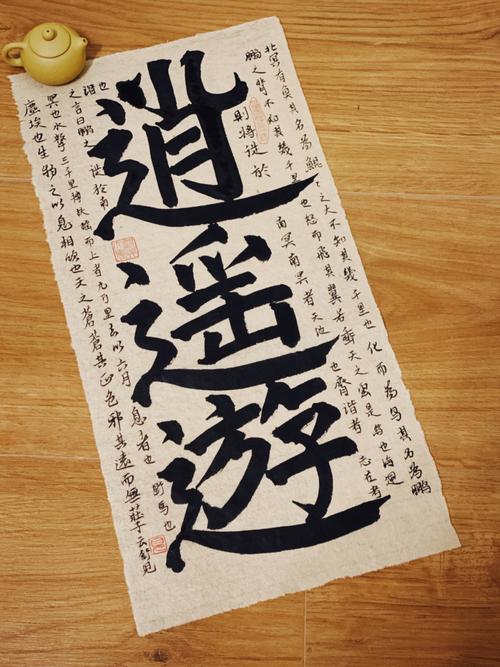 逍遥遊
北冥有魚其名為鯤鯤之大不知其幾千里也化而為鳥其名為鵬
鵬之背不知其幾千里也怒而飛其翼若垂天之雲是鳥也海運
則將徙於南冥南冥者天池也齊諧者志
者
也諧
之言曰鵬之徙於南
冥也水擊三千里摶扶搖而上者九万里去以六月息者也野馬也
塵埃也生物之以息相吹也天之蒼蒼其正色邪其遠而無莊子